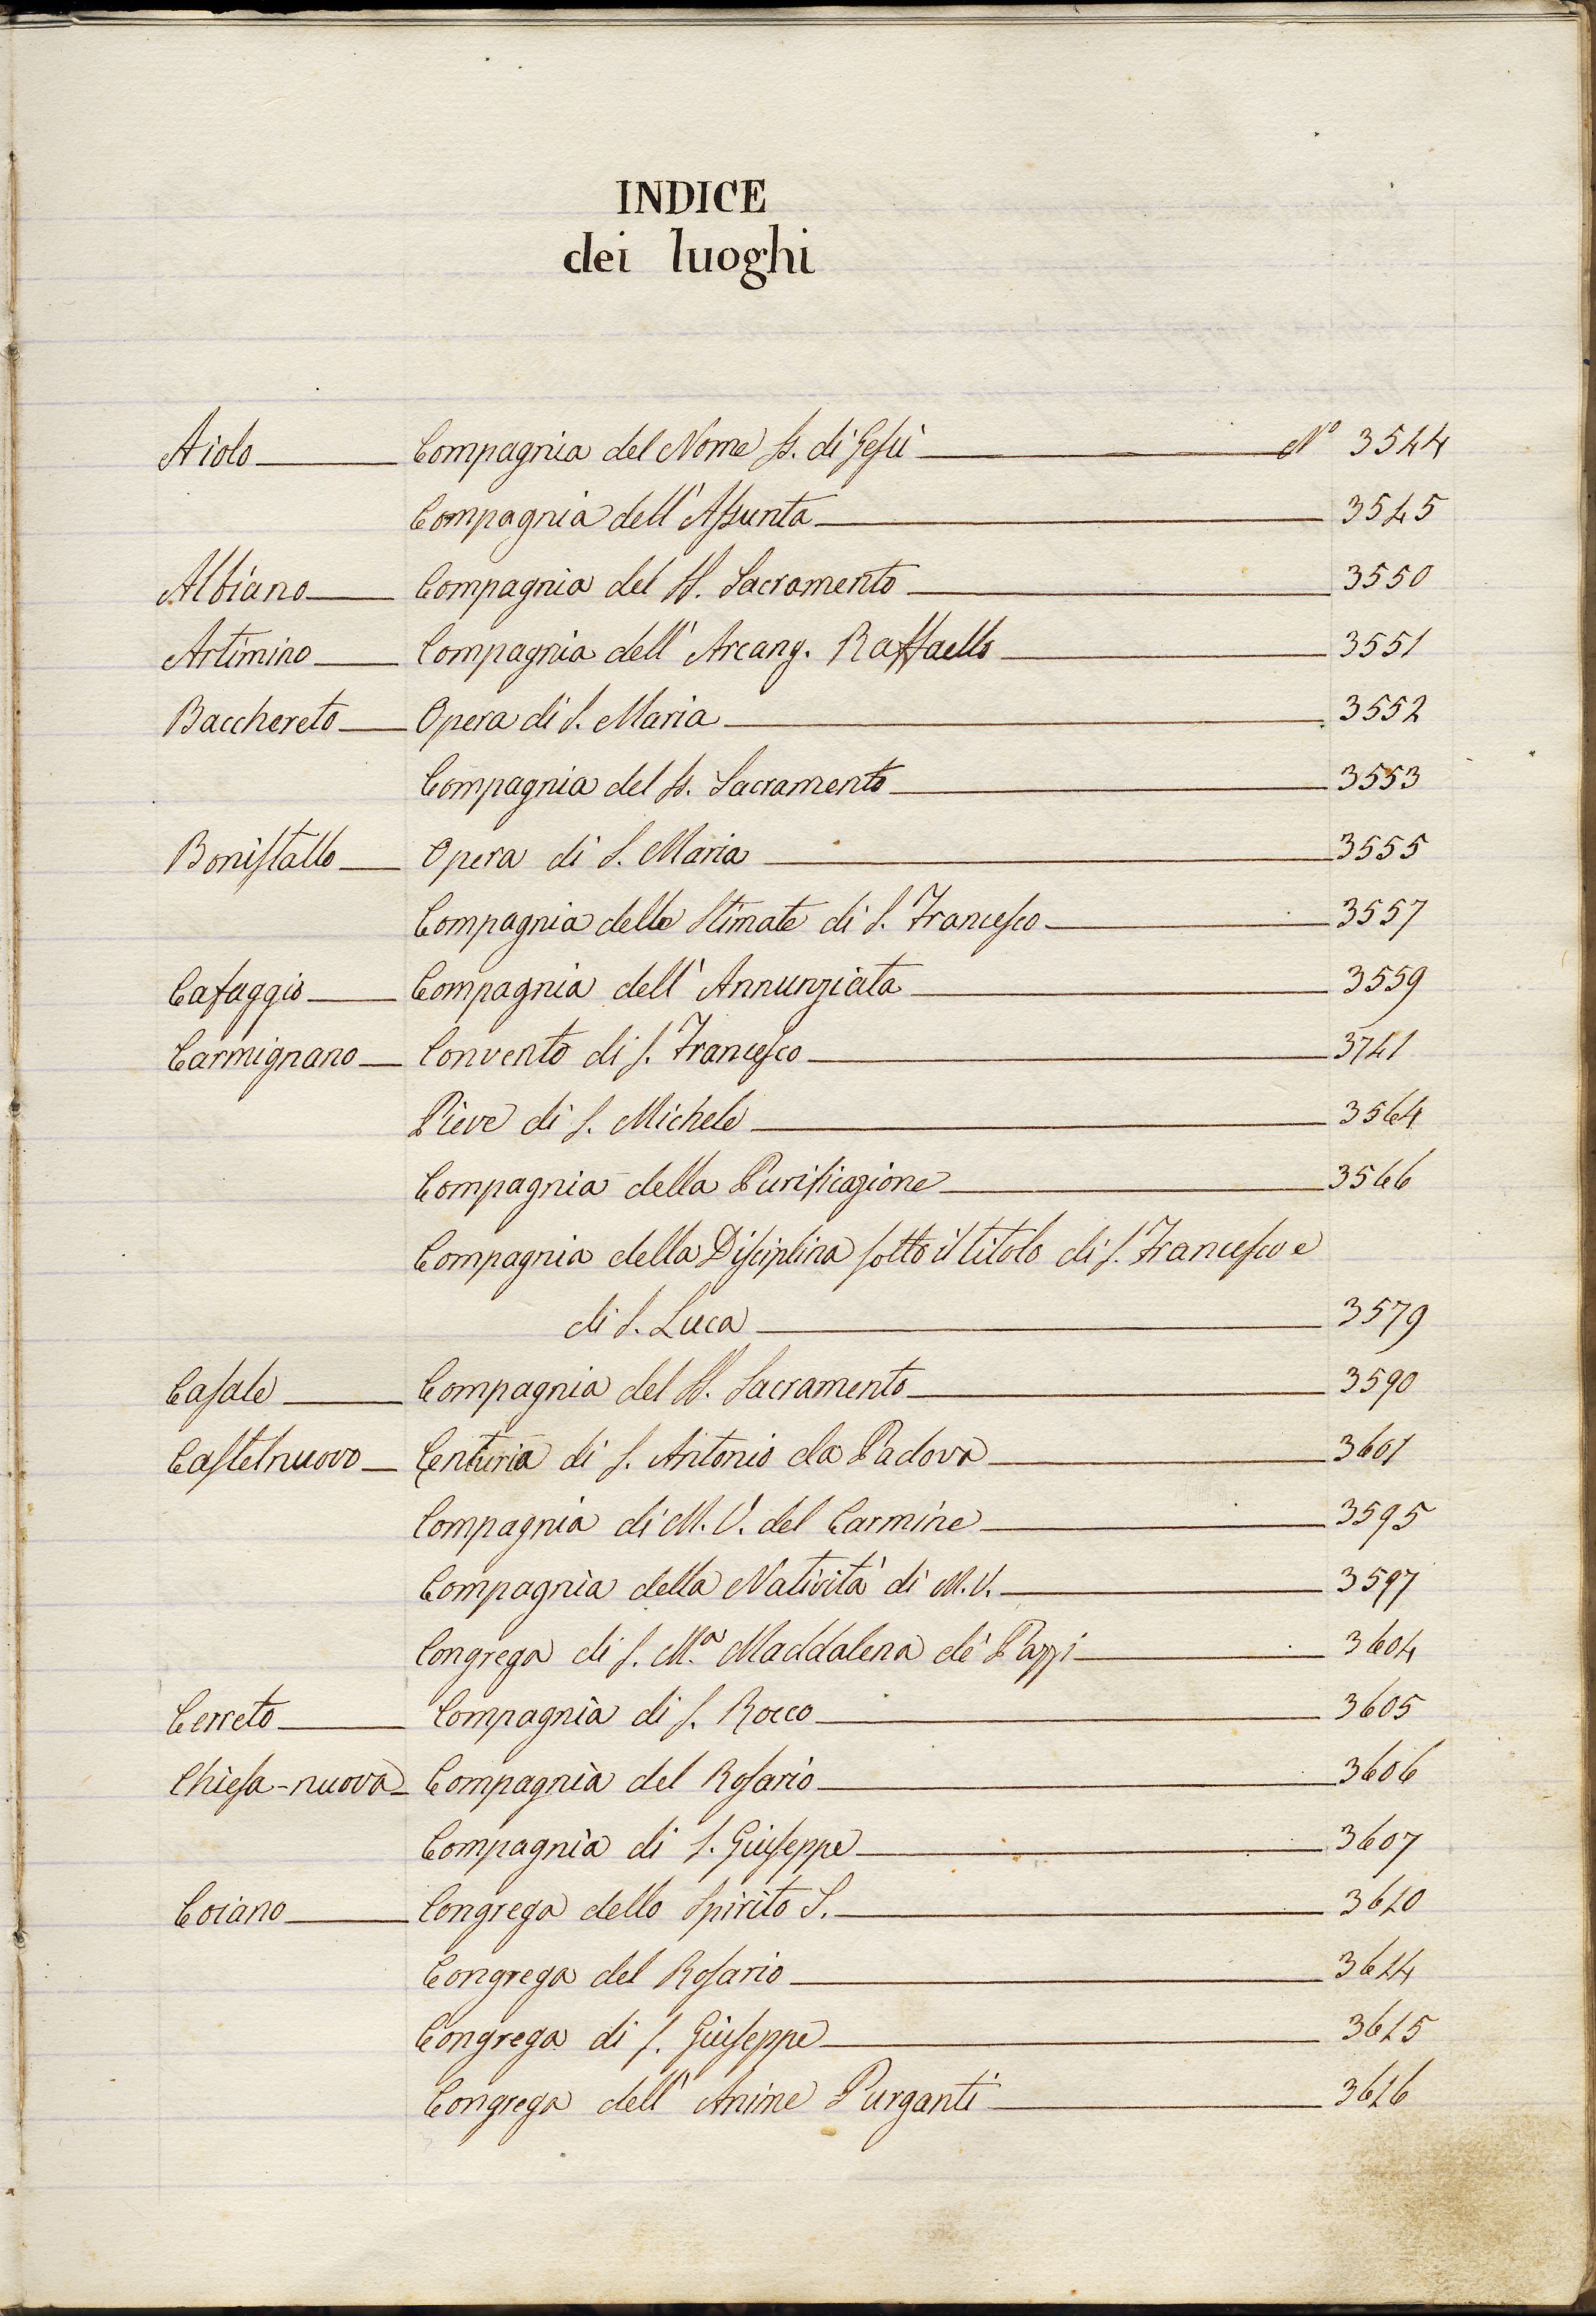 INDICE
dei luoghi
Aiolo Compagnia del Nome Ss. di Gesù N° 3544
Compagnia dell' Assunta 3545
Albiano Compagnia del SS. Sacramento 3550
Artimino Compagnia dell' Arcang. Raffaello 3551
Bacchereto Opera di S. Maria 3552
Compagnia del Ss. Sacramento 3553
Bonistallo Opera di S. Maria 3555
Compagnia delle Stimate di S. Francesco 3557
Cafaggio Compagnia dell' Annunziata 3559
Carmignano Convento di S. Francesco 3741
Pieve di S. Michele 3564
Compagnia della Purificazione 3566
Compagnia della Disciplina sotto il titolo di S. Francesco e
di S. Luca 3579
Casale Compagnia del SS. Sacramento 3590
Castelnuovo Centuria di S. Antonio da Padova 3601
Compagnia di M. V. del Carmine 3595
Compagnia della Natività di M. V. 3597
Congrega di S. M.ª Maddalena de' Pazzi 3604
Cerreto Compagnia di S. Rocco 3605
Chiesa-nuova Compagnia del Rosario 3606
Compagnia di S. Giuseppe 3607
Coiano Congrega dello Spirito S. 3610
Congrega del Rosario 3614
Congrega di S. Giuseppe 3615
Congrega dell' Anime Purganti 3616